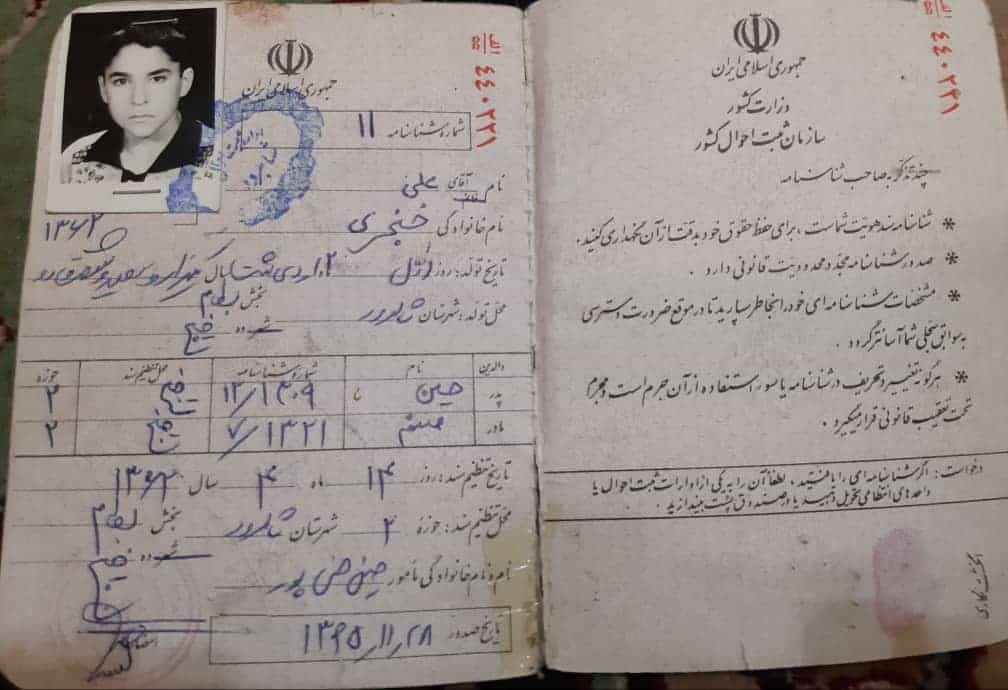 ۴۴۰۲۲۱
جمهوری اسلامی ایران
وزارت کشور
سازمان ثبت احوال کشور
چند تذکر به صاحب شناسنامه
* شناسنامه سند هویت شماست ، برای حفظ حقوق خود بدقت از آن نگهداری کنید .
* صدور شناسنامه مجدد محدودیت قانونی دارد .
* مشخصات شناسنامه ای خود را بخاطر بسپارید تا در موقع ضرورت دسترسی
به سوابق سجلی شما آسانتر گردد .
* هرگونه تغییر و تحریف در شناسنامه یا سوء استفاده از آن جرم است و مجرم
تحت تعقیب قانونی قرار میگیرد .
درخواست : اگر شناسنامه ای را یافتید ، لطفاً آن را به یکی از ادارات ثبت احوال یا
واحدهای انتظامی تحویل دهید یا در صندوق پست بیندازید .
انگشت نگاری
۴۴۰۲۲۱
جمهوری اسلامی ایران
شماره شناسنامه ۱۱
نام آقای علی
نام خانوادگی خنجری
تاریخ تولد : روز اول اردیبهشت
محل تولد : شهرستان شاهرود بخش بسطام
ده خیج
والدین نام شماره شناسنامه محل تنظیم سند حوزه
پدر حسین ۱۲/۱۳۰۹ خیج ۲
مادر ۷/۱۳۲۱ خیج ۲
تاریخ تنظیم سند : روز ۱۴ ماه ۴ سال
محل تنظیم سند : حوزه ۲ شهرستان شاهرود بخش بسطام
ده خیج
نام و نام خانوادگی مامور
تاریخ صدور